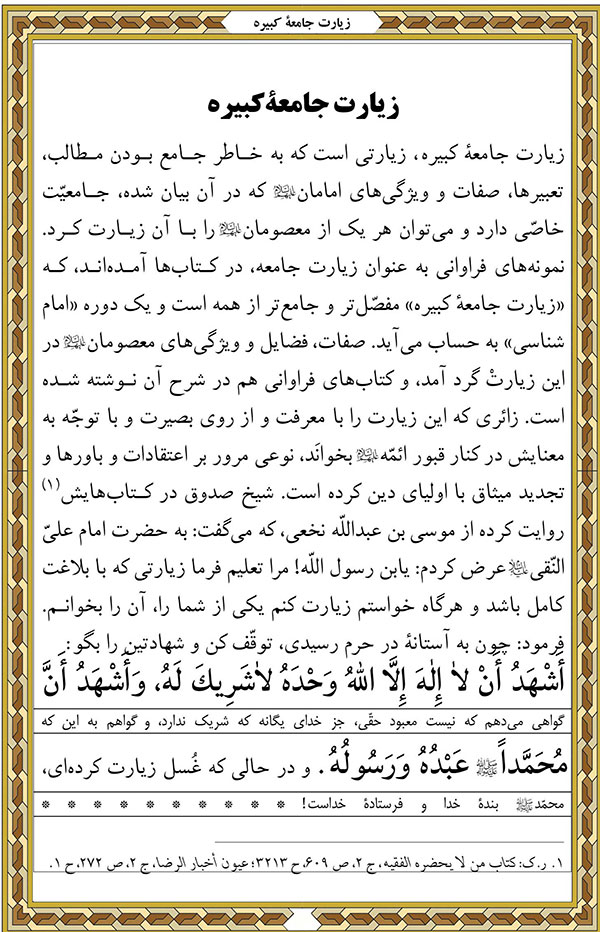 زیارت جامعهٔ کبیره
زیارت جامعهٔ کبیره
زیارت جامعهٔ کبیره، زیارتی است که به خاطر جامع بودن مطالب،
تعبیرها، صفات و ویژگی‌های امامان علیهم‌السلام که در آن بیان شده، جامعیّت
خاصّی دارد و می‌توان هر یک از معصومان علیهم‌السلام را با آن زیارت کرد.
نمونه‌های فراوانی به عنوان زیارت جامعه، در کتاب‌ها آمده‌اند، که
«زیارت جامعهٔ کبیره» مفصّل‌تر و جامع‌تر از همه است و یک دوره «امام
شناسی» به حساب می‌آید. صفات، فضایل و ویژگی‌های معصومان علیهم‌السلام در
این زیارتْ گرد آمد، و کتاب‌های فراوانی هم در شرح آن نوشته شده
است. زائری که این زیارت را با معرفت و از روی بصیرت و با توجّه به
معنایش در کنار قبور ائمّه علیهم‌السلام بخوانَد، نوعی مرور بر اعتقادات و باورها و
تجدید میثاق با اولیای دین کرده است. شیخ صدوق در کتاب‌هایش(۱)
روایت کرده از موسی بن عبداللّه نخعی، که می‌گفت: به حضرت امام علیّ
النّقی علیه‌السلام عرض کردم: یابن رسول اللّه! مرا تعلیم فرما زیارتی که با بلاغت
کامل باشد و هرگاه خواستم زیارت کنم یکی از شما را، آن را بخوانم.
فرمود: چون به آستانهٔ در حرم رسیدی، توقّف کن و شهادتین را بگو:
أَشْهَدُ أَنْ لاٰ إِلٰهَ إِلَّا اللهُ وَحْدَهُ لاٰشَرِيكَ لَهُ، وَأَشْهَدُ أَنَّ
گواهی می‌دهم که نیست معبود حقّی، جز خدای یگانه که شریک ندارد، و گواهم به این که
مُحَمَّداً ﷺ عَبْدُهُ وَرَسُولُهُ. و در حالی که غُسل زیارت کرده‌ای،
محمّد ﷺ بندهٔ خدا و فرستادهٔ خداست! * * * * * * * * * *
۱. ر.ک: کتاب من لا یحضره الفقیه، ج ۲، ص ۶۰۹، ح ۳۲۱۳؛ عیون أخبار الرضا، ج ۲، ص ۲۷۲، ح ۱.